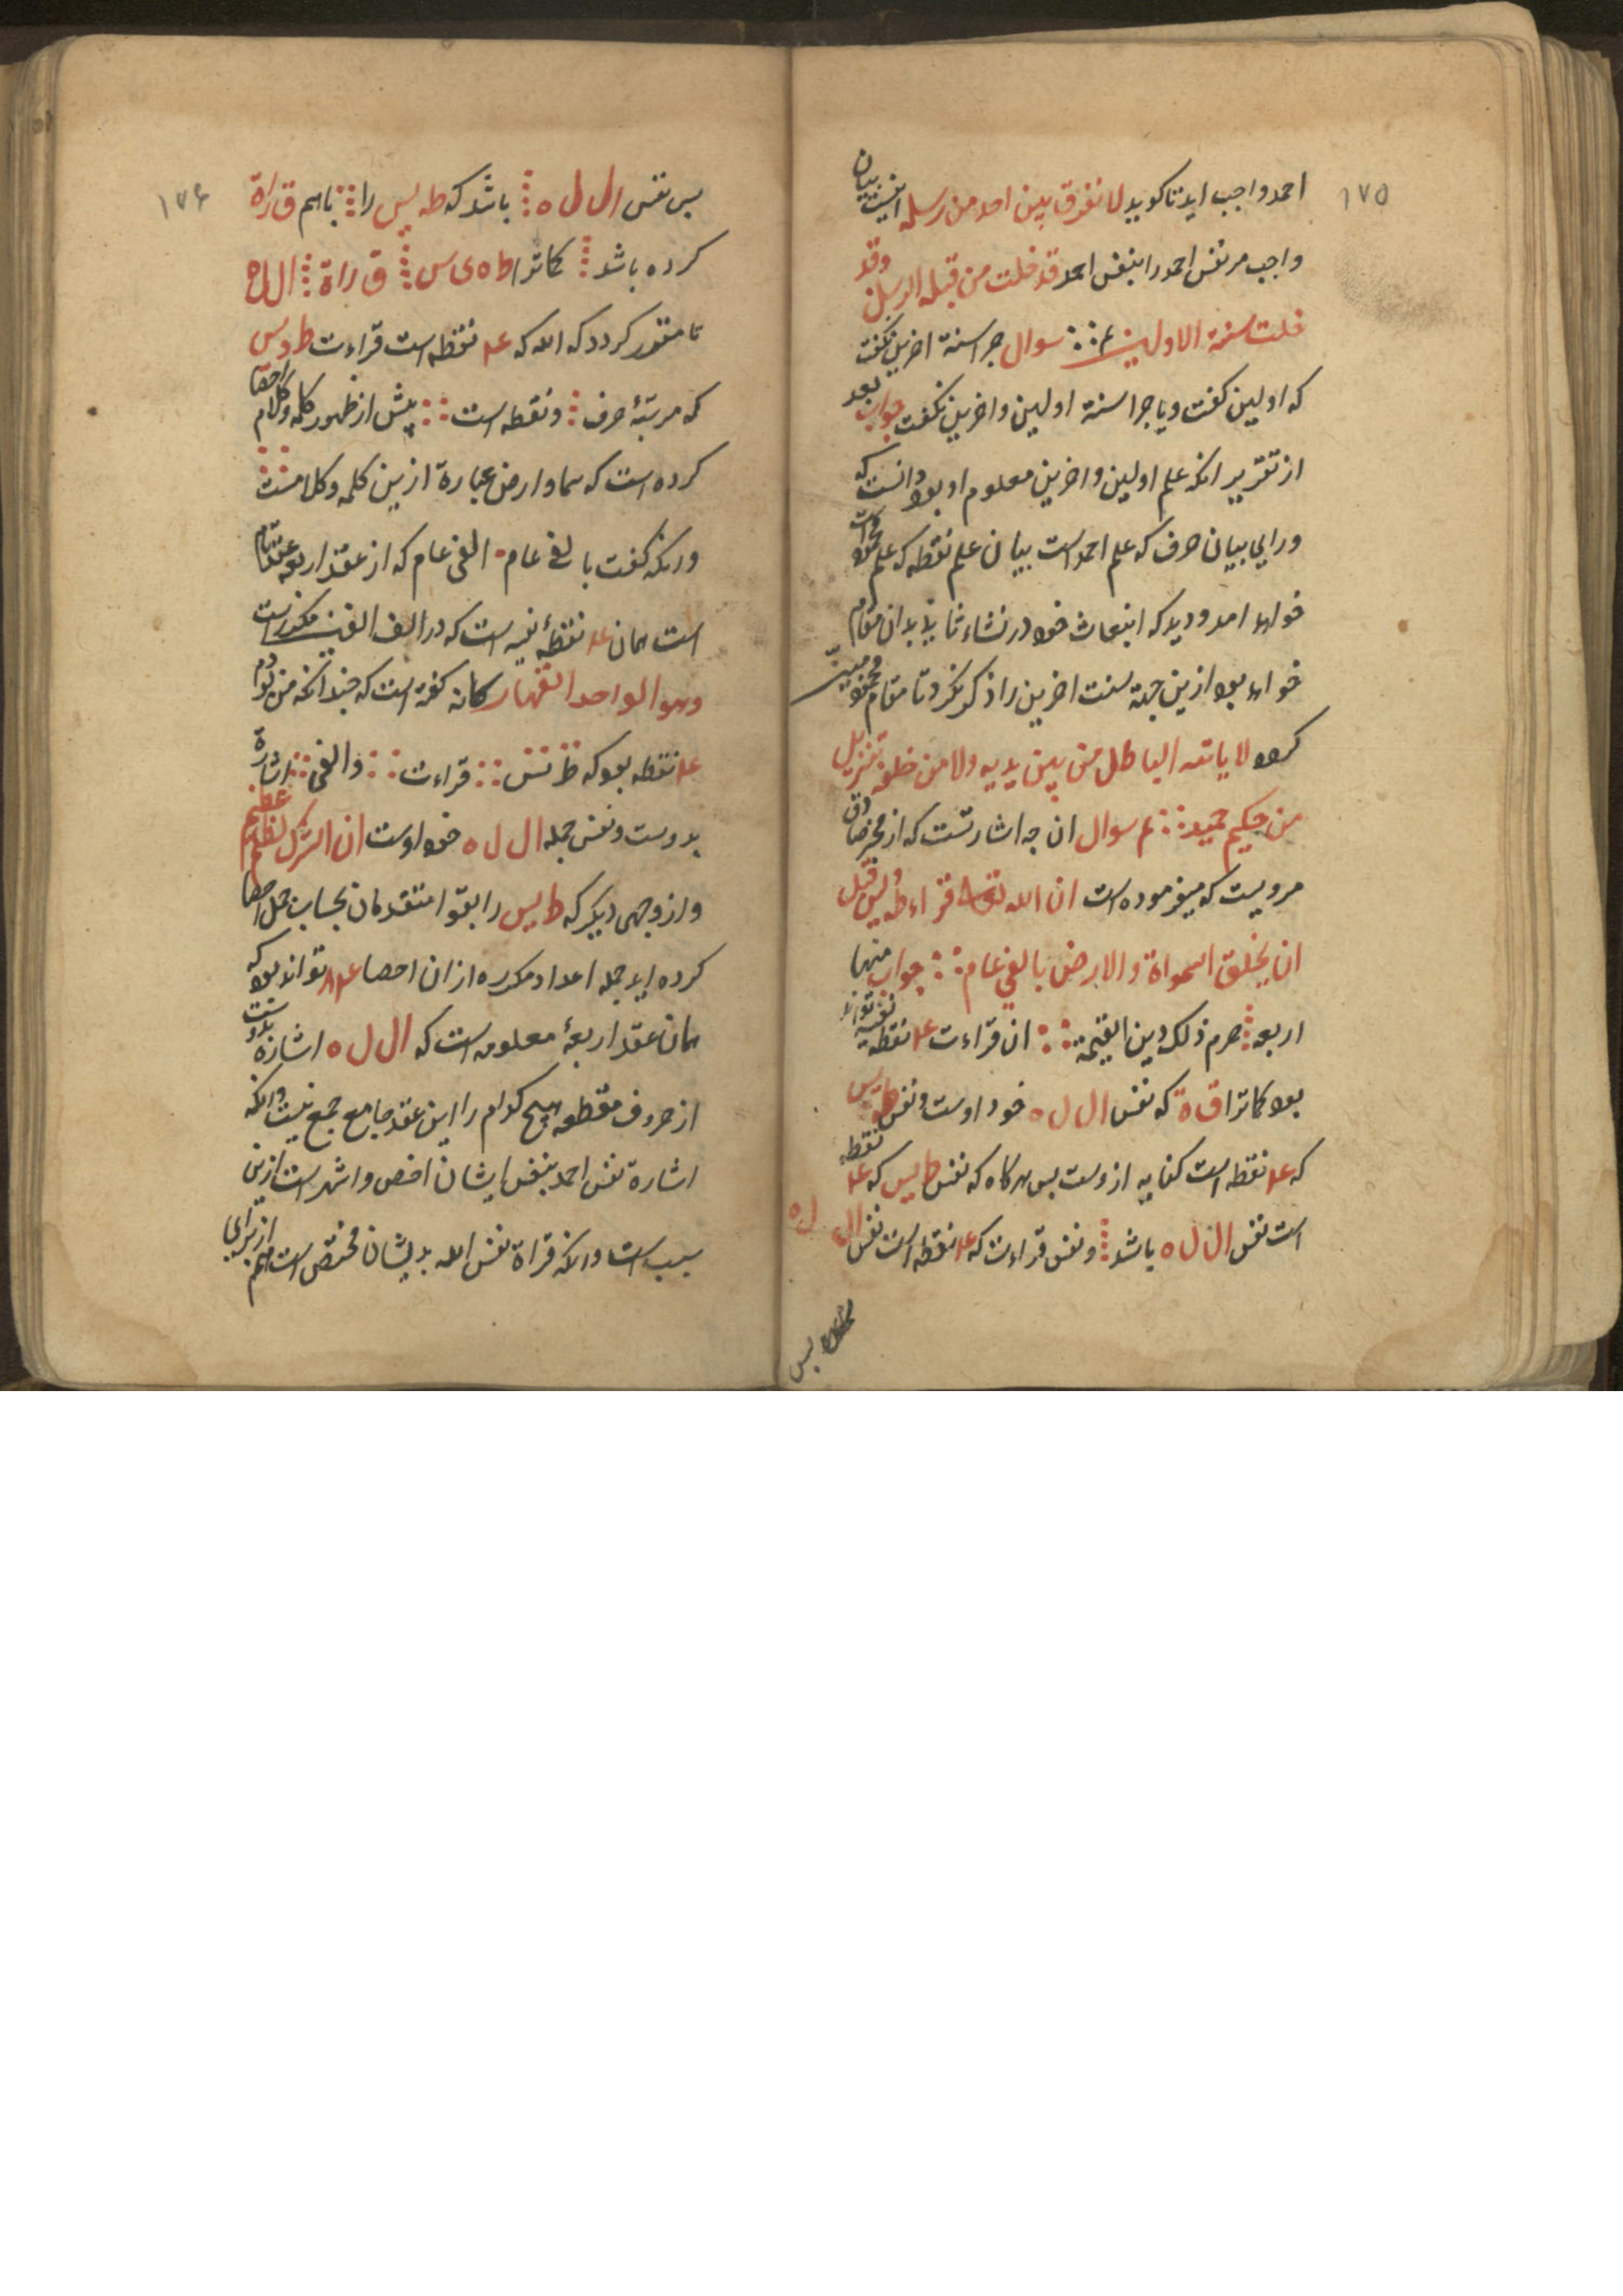 ۱۷۵
احمد واجب اید تا کوید لا نفرق بین احد من رسله اینست بیان
واجب مر نفس احمد را بنفس احمد قد خلت من قبله الرسل وقد
خلت سنة الاولین سوال جرا سنة اخرین نکفت
که اولین کفت و یا جرا سنة اولین و اخرین نکفت جواب بعد
از تقریر انکه علم اولین و اخرین معلوم او بود دانست که
ورای بیان حرف که علم احمد است بیان علم نقطه که علم محمود است
خواهد امد و دید که انبعاث خود در نشاء ثانیه بدان مقام
خواهد بود ازین جهة سنت اخرین را ذکر نکرد تا مقام محمود مبین
کرد لا یاتیه الباطل من بین یدیه ولا من خلفه تنزیل
من حکیم حمید م سوال ان جه اشارتست که از مخبر صادق
مرویست که میفرموده است ان الله تعالی قراء طه ویس قبل
ان یخلق السمواة والارض بالفی عام جواب منها
اربعه حرم ذلک دین القیمة ان قراءت ع‍ا نقطه نفسیه تواند
بود کماترا ق ة که نفس ال ل ه خود اوست و نفس طه یس
که ع‍ا نقطه است کنایه ازوست بس هر کاه که نفس طه یس که ع‍ا نقطه
است نفس ال ل ه باشد و نفس قراءت که ع‍ا نقطه است نفس ال ل ه
بس
۱۷۶
بس نفس ال ل ه باشد که طه یس را باهم ق راة
کرده باشد کماترا ط ه ی س ق راة ال ل ه
تا مقرر کردد که الله که ع‍ا نقطه است قراءت طه و یس
که مرتبهٔ حرف و نقطه است پیش از ظهور کلمه و کلام احصا
کرده است که سما و ارض عبارة ازین کلمه و کلامست
ورانکه کفت بالفی عام الفی عام که از عقد اربعه عقد تام
است همان ع‍ا نقطهٔ نفسیه است که در الف الفین مکرر است
وهو الواحد القهار کانه کفته است که جندانکه من بودم
ع‍ا نقطه بود که نفس قراءت و الفی اشارة
بدوست و نفس جمله ال ل ه خود اوست ان الشرک لظلم عظیم
و از وجهی دیکر که طه یس را بقو امتقدمان بحساب جمل احصا
کرده اید جمله اعداد مکرره ازان احصا تواند بود که
همان عقد اربعهٔ معلومه است که ال ل ه اشارة بدوست
از حروف مقطعه هیچ کدام را این عقد جامع جمع نیست و انکه
اشارة نفس احمد بنفس ایشان اخص و اشهر است ازین
سبب است و انکه قراة نفس الله بدیشان مختص است هم از برای